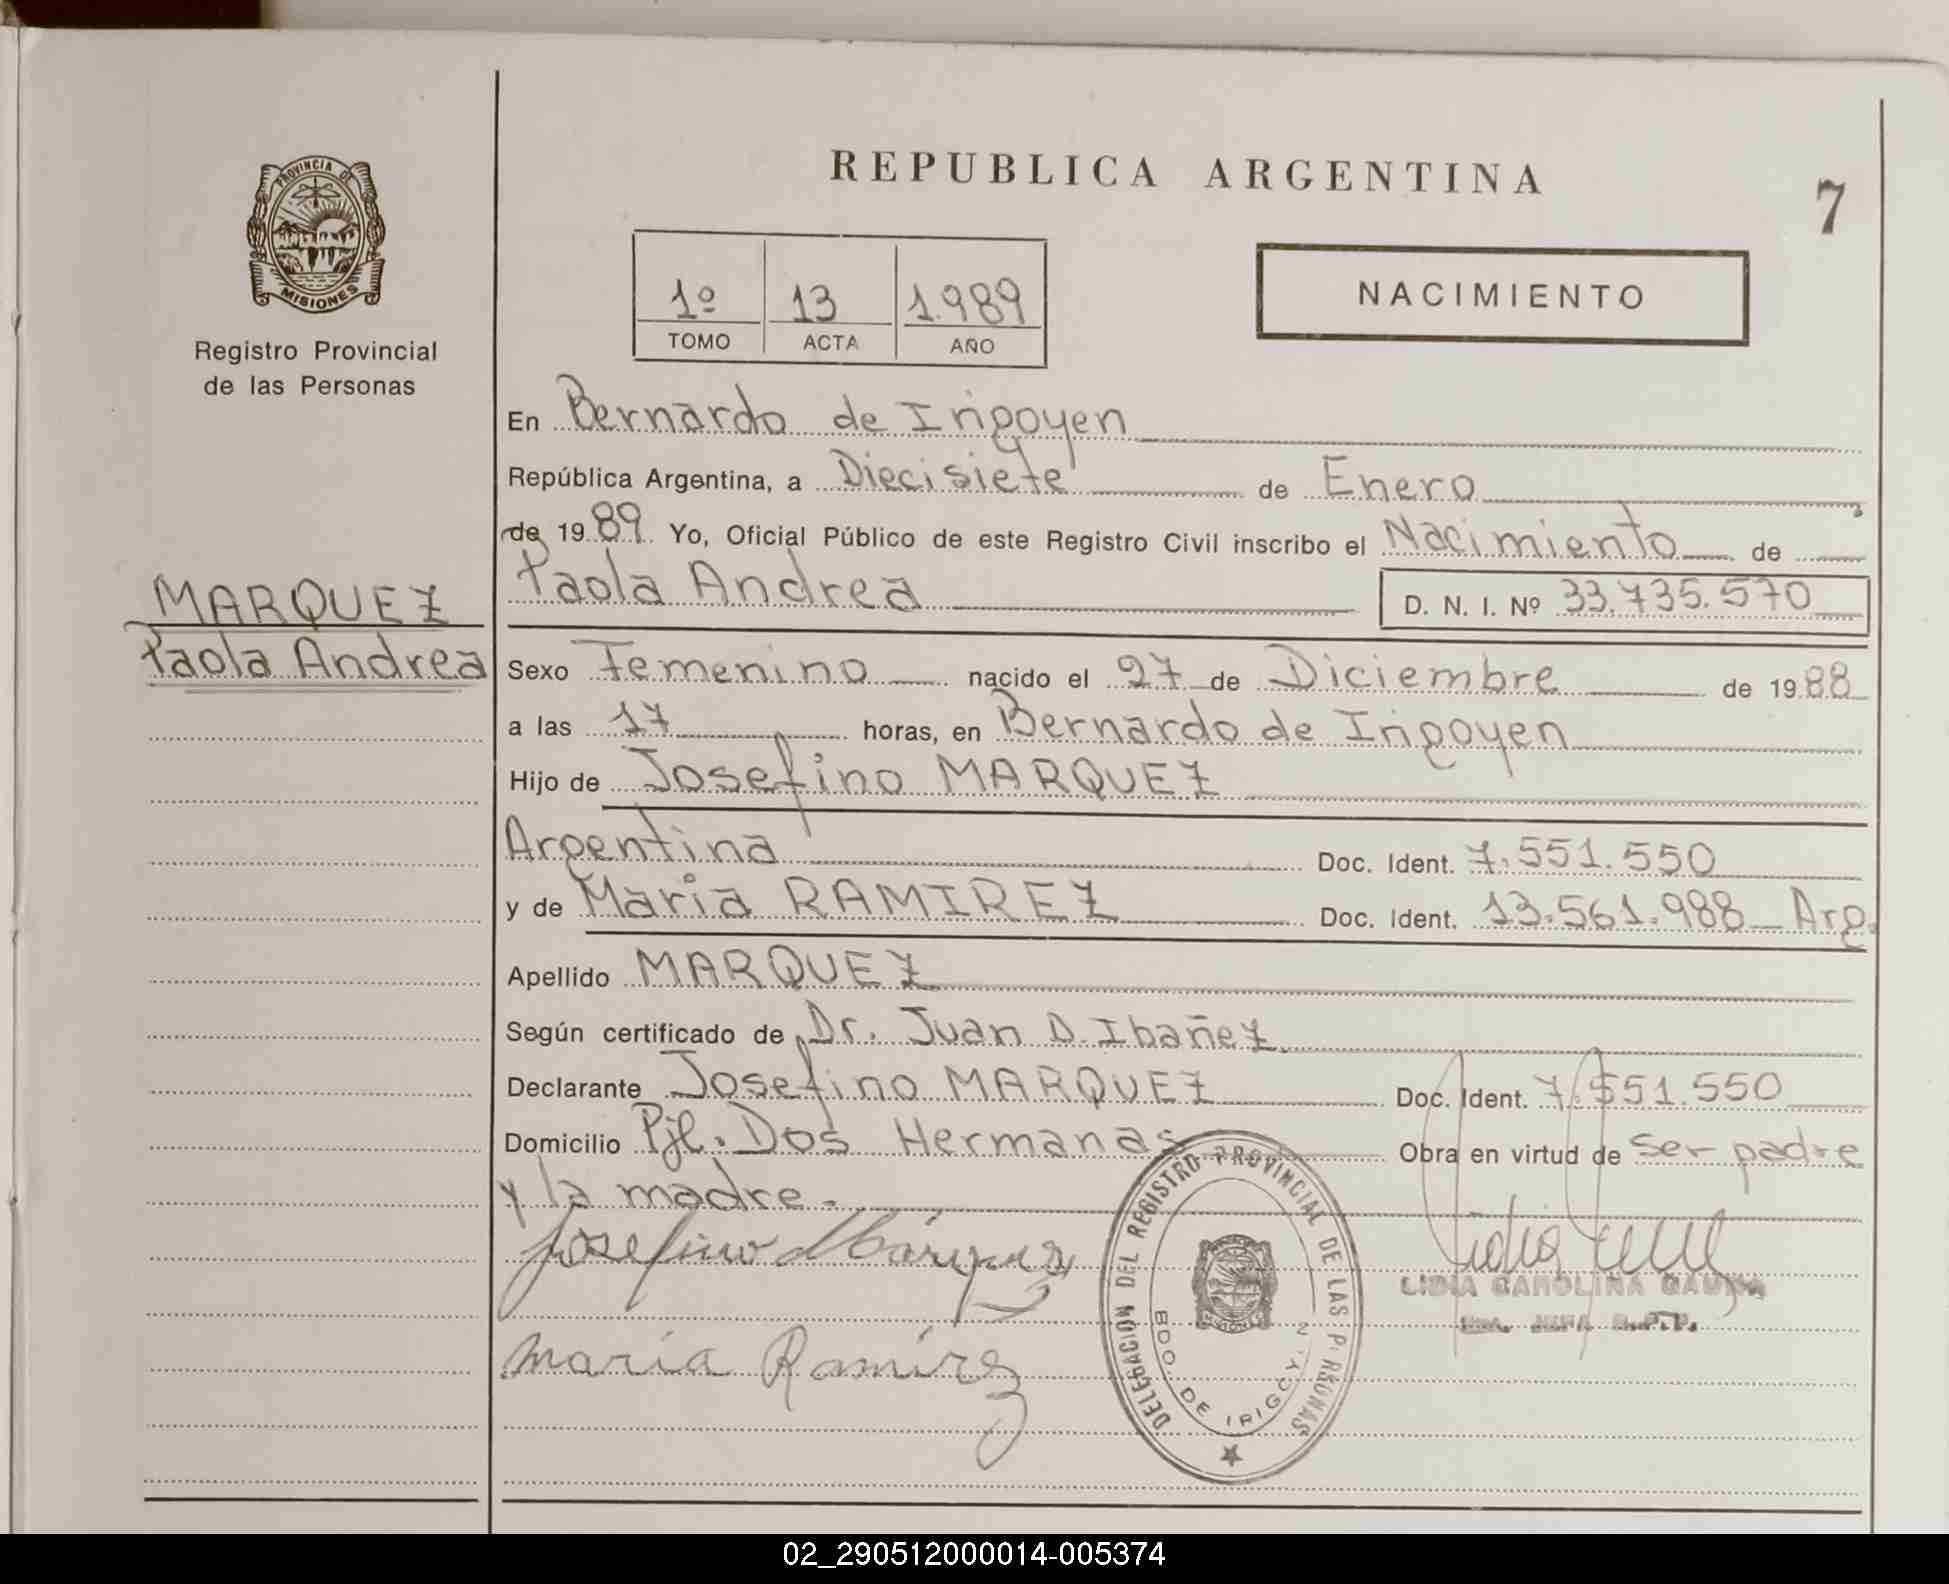 PROVINCIA DE
MISIONES
Registro Provincial
de las Personas
MARQUEZ
Paola Andrea
REPUBLICA ARGENTINA
7
1º 13 1.989
TOMO ACTA AÑO
NACIMIENTO
En Bernardo de Irigoyen
República Argentina, a Diecisiete de Enero
de 1989 Yo, Oficial Público de este Registro Civil inscribo el Nacimiento de
Paola Andrea D. N. I. Nº 33.735.570
Sexo Femenino nacido el 27 de Diciembre de 1988
a las 17 horas, en Bernardo de Irigoyen
Hijo de Josefino MARQUEZ
Argentina Doc. Ident. 7.551.550
y de Maria RAMIREZ Doc. Ident. 13.561.988 Arg.
Apellido MARQUEZ
Según certificado de Dr. Juan D. Ibañez
Declarante Josefino MARQUEZ Doc. Ident. 7.551.550
Domicilio Pje. Dos Hermanas Obra en virtud de ser padre
y la madre.
Josefino Márquez
LIDIA CAROLINA
María Ramírez
DELEGACION DEL REGISTRO PROVINCIAL DE LAS P RSONAS
BDO. DE IRIGOY N
02_290512000014-005374